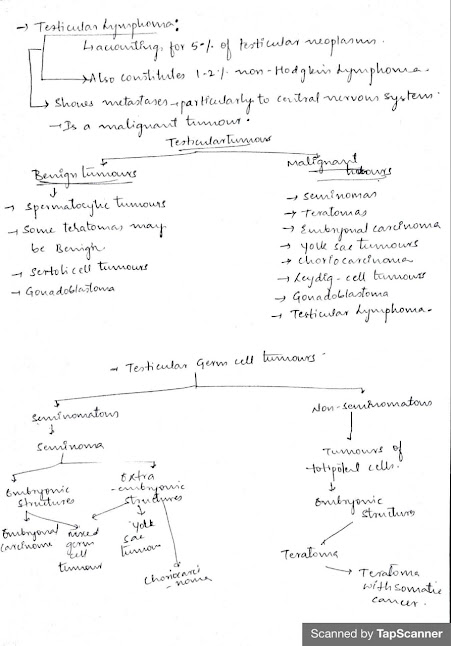 → Testicular Lymphoma:
↳ accounting for 5% of testicular neoplasm.
→ Also constitutes 1-2% non-Hodgkin Lymphoma.
→ Shows metastases → particularly to central nervous system.
→ Is a malignant tumour.
Testicular tumour
Benign tumours
→ Spermatocytic tumours
→ Some teratomas may
be Benign.
→ Sertoli cell tumours
→ Gonadoblastoma
Malignant tumours
→ Seminomas
→ Teratomas
→ Embryonal carcinoma
→ Yolk sac tumours
→ Choriocarcinoma
→ Leydig-cell tumours
→ Gonadoblastoma
→ Testicular Lymphoma.
→ Testicular Germ cell tumours.
Seminomatous
Seminoma
Embryonic
structures
Embryonal
carcinoma
mixed
germ
cell
tumour
Extra
-embryonic
structures
Yolk
sac
tumour
Choriocarci
-noma
Non-seminomatous
Tumours of
totipotent cells.
Embryonic
structures
Teratoma
→ Teratoma
with somatic
cancer.
Scanned by TapScanner